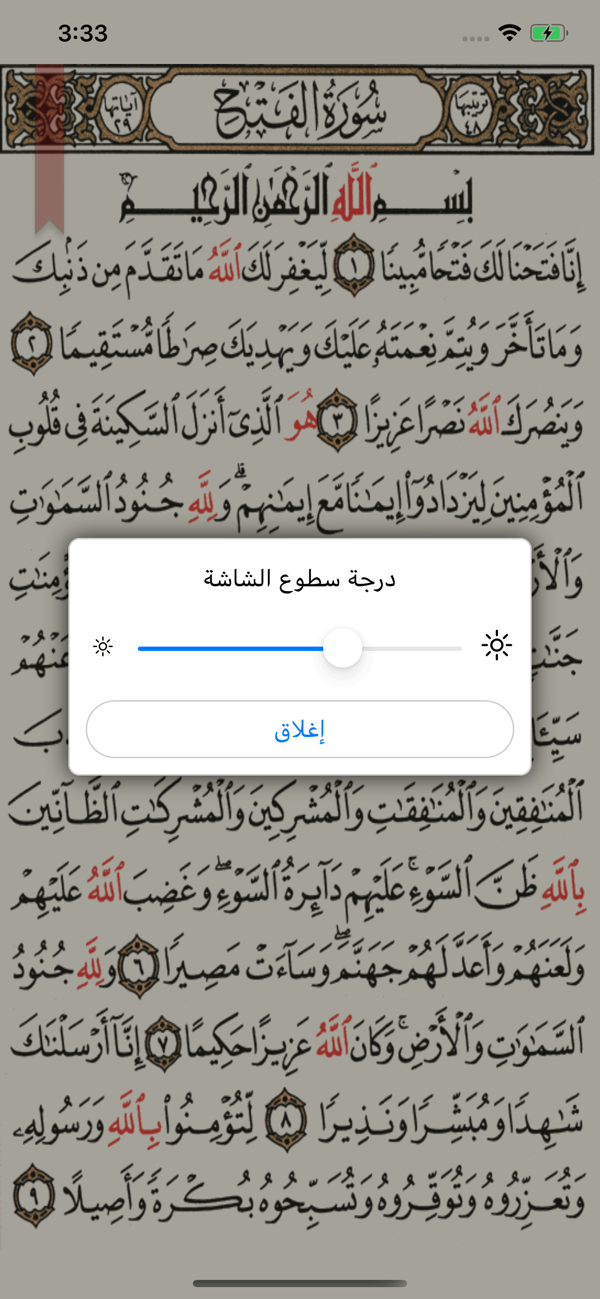 3:33
ترتيبها ٤٨
سُورَةُ الفَتْحِ
آياتها ٢٩
بِسْمِ اللَّهِ الرَّحْمَٰنِ الرَّحِيمِ
إِنَّا فَتَحْنَا لَكَ فَتْحًا مُّبِينًا ١ لِّيَغْفِرَ لَكَ ٱللَّهُ مَا تَقَدَّمَ مِن ذَنۢبِكَ
وَمَا تَأَخَّرَ وَيُتِمَّ نِعْمَتَهُۥ عَلَيْكَ وَيَهْدِيَكَ صِرَٰطًا مُّسْتَقِيمًا ٢
وَيَنصُرَكَ ٱللَّهُ نَصْرًا عَزِيزًا ٣ هُوَ ٱلَّذِىٓ أَنزَلَ ٱلسَّكِينَةَ فِى قُلُوبِ
ٱلْمُؤْمِنِينَ لِيَزْدَادُوٓا۟ إِيمَٰنًا مَّعَ إِيمَٰنِهِمْ ۗ وَلِلَّهِ جُنُودُ ٱلسَّمَٰوَٰتِ
درجة سطوع الشاشة
إغلاق
ٱلْمُنَٰفِقِينَ وَٱلْمُنَٰفِقَٰتِ وَٱلْمُشْرِكِينَ وَٱلْمُشْرِكَٰتِ ٱلظَّآنِّينَ
بِٱللَّهِ ظَنَّ ٱلسَّوْءِ ۚ عَلَيْهِمْ دَآئِرَةُ ٱلسَّوْءِ ۖ وَغَضِبَ ٱللَّهُ عَلَيْهِمْ
وَلَعَنَهُمْ وَأَعَدَّ لَهُمْ جَهَنَّمَ ۖ وَسَآءَتْ مَصِيرًا ٦ وَلِلَّهِ جُنُودُ
ٱلسَّمَٰوَٰتِ وَٱلْأَرْضِ ۚ وَكَانَ ٱللَّهُ عَزِيزًا حَكِيمًا ٧ إِنَّآ أَرْسَلْنَٰكَ
شَٰهِدًا وَمُبَشِّرًا وَنَذِيرًا ٨ لِّتُؤْمِنُوا۟ بِٱللَّهِ وَرَسُولِهِۦ
وَتُعَزِّرُوهُ وَتُوَقِّرُوهُ وَتُسَبِّحُوهُ بُكْرَةً وَأَصِيلًا ٩